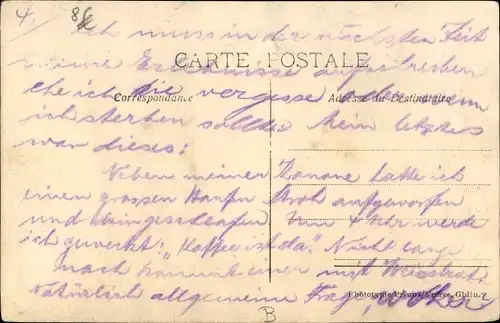 4.
Ich muss in der nächsten Zeit
CARTE POSTALE
meine Erlebnisse aufschreiben
Correspondance
Adresse du Destinataire
ehe ich die vergesse oder wenn
ich sterben sollte. Mein letztes
war dieses:
Neben meiner Kanone hatte ich
einen grossen Haufen Stroh aufgeworfen
und eingeschlafen. Um 4 Uhr werde
ich geweckt: "Kaffee ist da." Nicht lange
nach kommt einer mit
Natürlich allgemeine Frage, woher
Phototypie Frères, Ghlin.
B